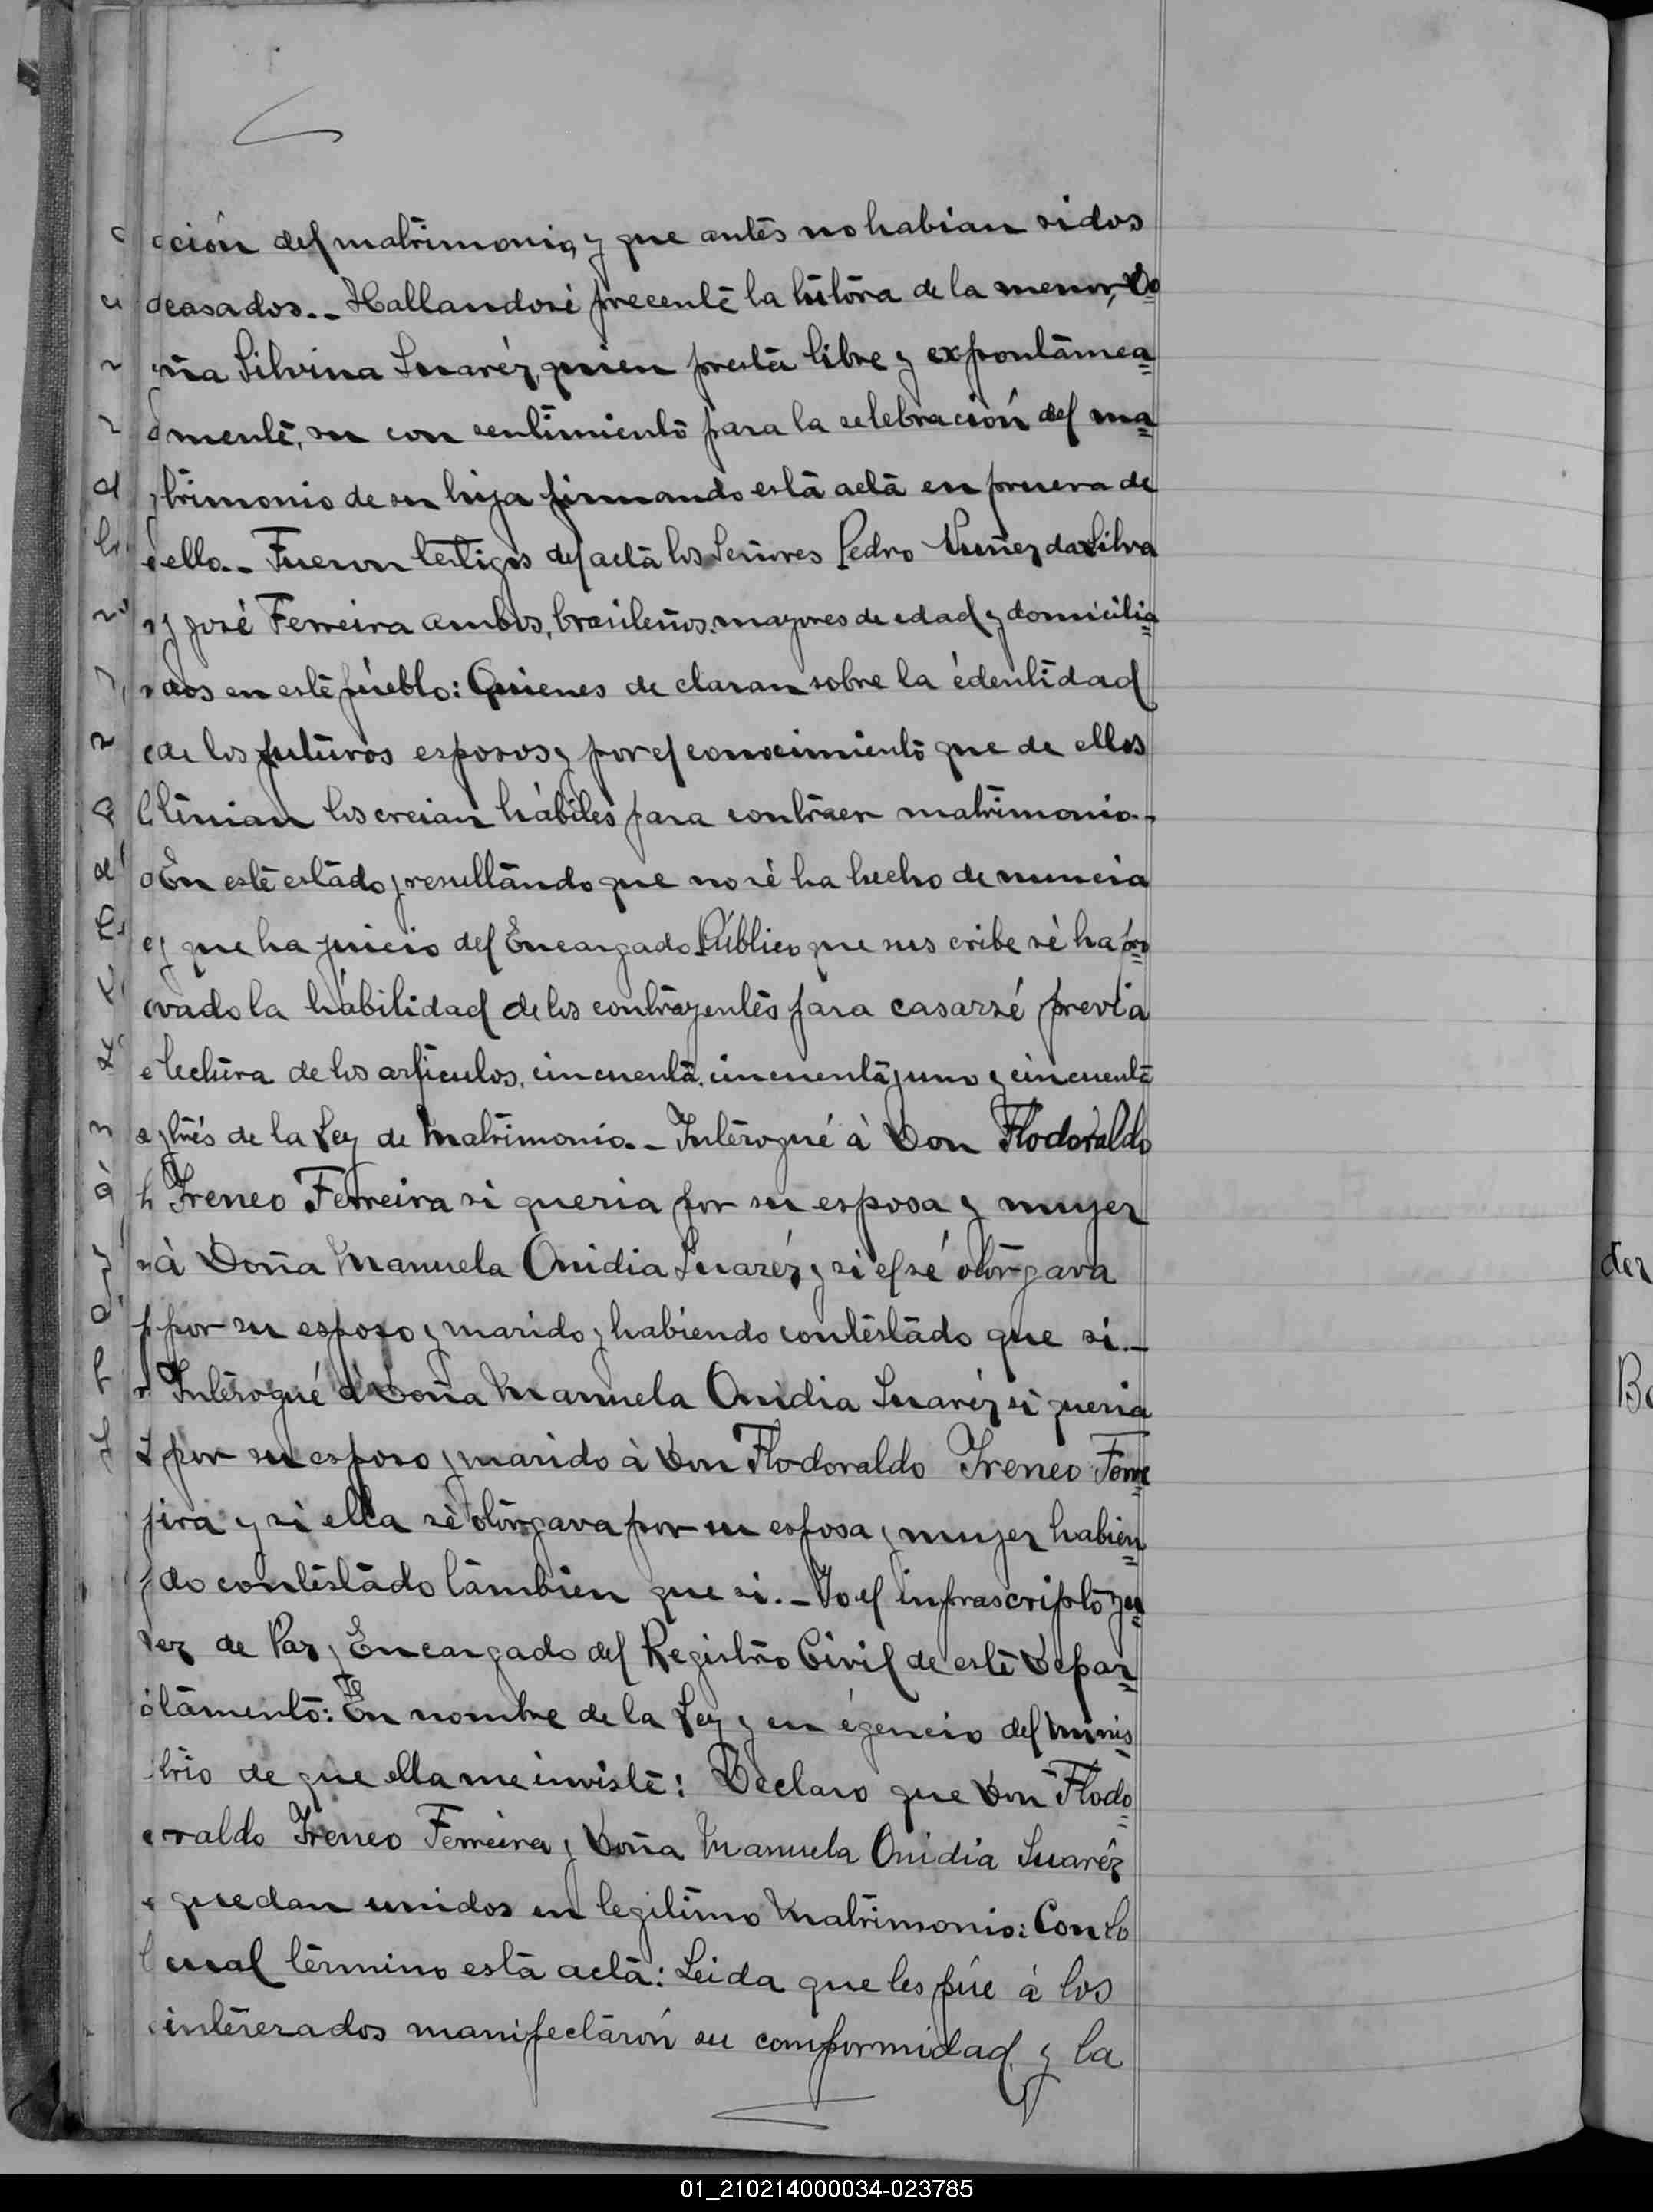 ción del matrimonio, y que antes no habian sidos
casados.- Hallandosé precente la tutora de la menor, Do
ña Silvina Suaréz, quien presta libre y expontámea
mente, su con sentimiento para la selebración del ma
trimonio de su hija firmando esta acta en prueva de
ello.- Fueron testigos del acta los Señores Pedro Nuñez da Silva
y José Ferreira ambos, brasileños, mayores de edad y domicilia
dos en este púeblo: Quienes de claran sobre la édentidad
de los futuros esposos y por el conocimiento que de ellos
tenian los creian hábiles para contraer matrimonio.-
En este estado y resultando que no sé ha hecho de nuncia
y que ha juicio del Encargado Público que sus cribe sé ha pro
vado la hábilidad de los contrayentes para casarsé previa
lectura de los articulos, cincuenta, cincuenta y uno y cincuenta
y trés de la Ley de Matrimonio.- Interogué à Don Flodoraldo
Ireneo Ferreira si queria por su esposa y mujer
à Doña Manuela Onidia Suaréz y si el sé otorgava
por su esposo y marido y habiendo contestado que si.-
Interogué à Doña Manuela Onidia Suaréz si queria
por su esposo y marido à Don Flodoraldo Ireneo Ferre
ira y si ella sé otorgava por su esposa y mujer habien
do contestado tambien que si.- Yo el infrascripto Ju
ez de Paz y Encargado del Registro Civil de este Depar
tamento: En nombre de la Ley y en égencio del minis
trio de que ella me inviste: Declaro que Don Flodo
raldo Ireneo Ferreira y Doña Manuela Onidia Suaréz
quedan unidos en legitimo Matrimonio: Con lo
cual termino esta acta: Leida que les fúe á los
interezados manifectarón su comformidad y la
01_210214000034-023785